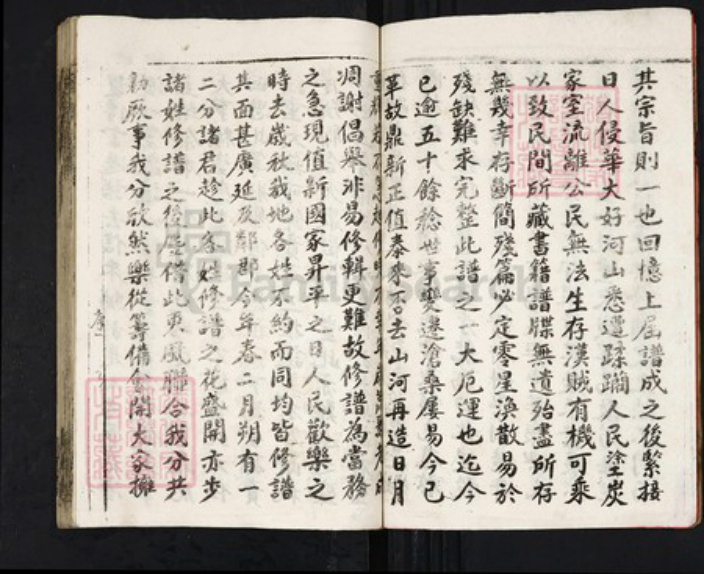 其宗旨則一也回憶上屆譜成之後緊接
日人侵華大好河山悉遭蹂躪人民塗炭
家室流離公民無法生存漢賊有機可乘
以致民間所藏書籍譜牒無遺殆盡所存
無幾幸存斷簡殘篇必定零星渙散易於
殘缺難求完整此譜之一大厄運也迄今
已逾五十餘稔世事變遷滄桑屢易今已
革故鼎新正值泰來否去山河再造日月
凋謝倡舉非易修輯更難故修譜為當務
之急現值新國家昇平之日人民歡樂之
時去歲秋我地各姓不約而同均皆修譜
其面甚廣延及鄰郡今年春二月朔有一
二分諸君趁此各姓修譜之花盛開亦步
諸姓修譜之後塵借此東風聯合我分共
勷厥事我分欣然樂從籌備會開大家擁
序
FamilySearch